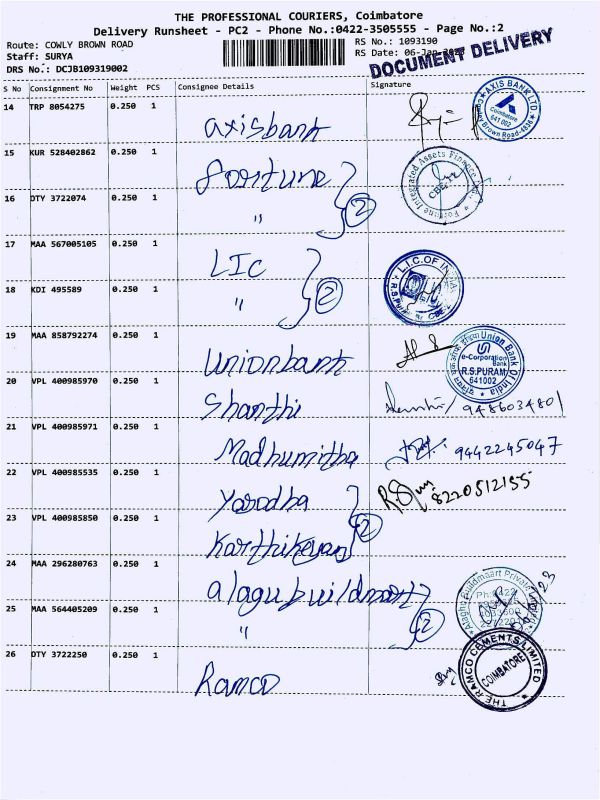 THE PROFESSIONAL COURIERS, Coimbatore
Delivery Runsheet - PC2 - Phone No.:0422-3505555 - Page No.:2
Route: COWLY BROWN ROAD
RS No.: 1093190
Staff: SURYA
RS Date: 06-Jan-
DRS No.: DCJB109319002
DOCUMENT DELIVERY
S No Consignment No Weight PCS Consignee Details Signature
14 TRP 8054275 0.250 1 axisbank
AXIS BANK LTD
Coimbatore
641 002
15 KUR 528402862 0.250 1 fortune
Fortune Integrated Assets Finance
16 DTY 3722074 0.250 1 " 2
17 MAA 567005105 0.250 1 LIC
L.I.C. OF INDIA
18 KDI 495589 0.250 1 " 2
19 MAA 858792274 0.250 1 Unionbank
Union Bank Of India
e-Corporation
Bank
R.S.PURAM
641002
20 VPL 400985970 0.250 1 Shanthi 9486034801
21 VPL 400985971 0.250 1 Madhumitha 9442245047
22 VPL 400985535 0.250 1 Yasodha 8220512155
23 VPL 400985850 0.250 1 Karthikeyan 2
24 MAA 296280763 0.250 1 alagubuildmart
25 MAA 564405209 0.250 1 " 2
26 DTY 3722250 0.250 1 Ramco
THE RAMCO CEMENTS LIMITED
COIMBATORE